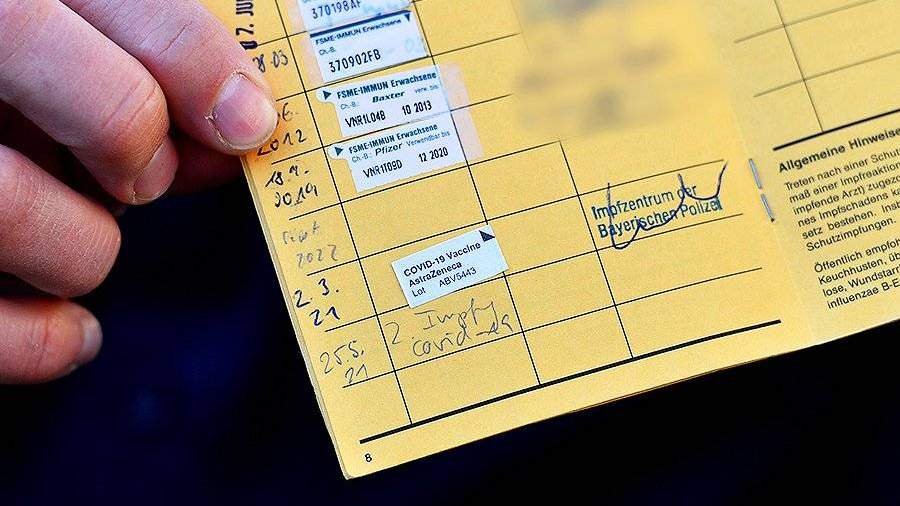 02. JU
370198AF
FSME-IMMUN Erwachsene
Ch.-B.:
370902FB
FSME-IMMUN Erwachsene
Ch.-B.: Baxter verw. bis
VNR1L04B 10 2013
2012
FSME-IMMUN Erwachsene
Ch.-B.: Pfizer Verwendbar bis
VNR1T09D 12 2020
18.7.
2019
2022
Impfzentrum der
Bayerischen Polizei
COVID-19 Vaccine
AstraZeneca
Lot ABV5443
2.3.
21
2 Impfg
covid-19
25.5.
21
8
Allgemeine Hinweise
Treten nach einer Schut
maß einer Impfreaktion
impfende Arzt) zugezo
nes Impfschadens ka
setz bestehen. Insb
Schutzimpfungen.
Öffentlich empfoh
Keuchhusten, üb
lose, Wundstarr
influenzae B-E